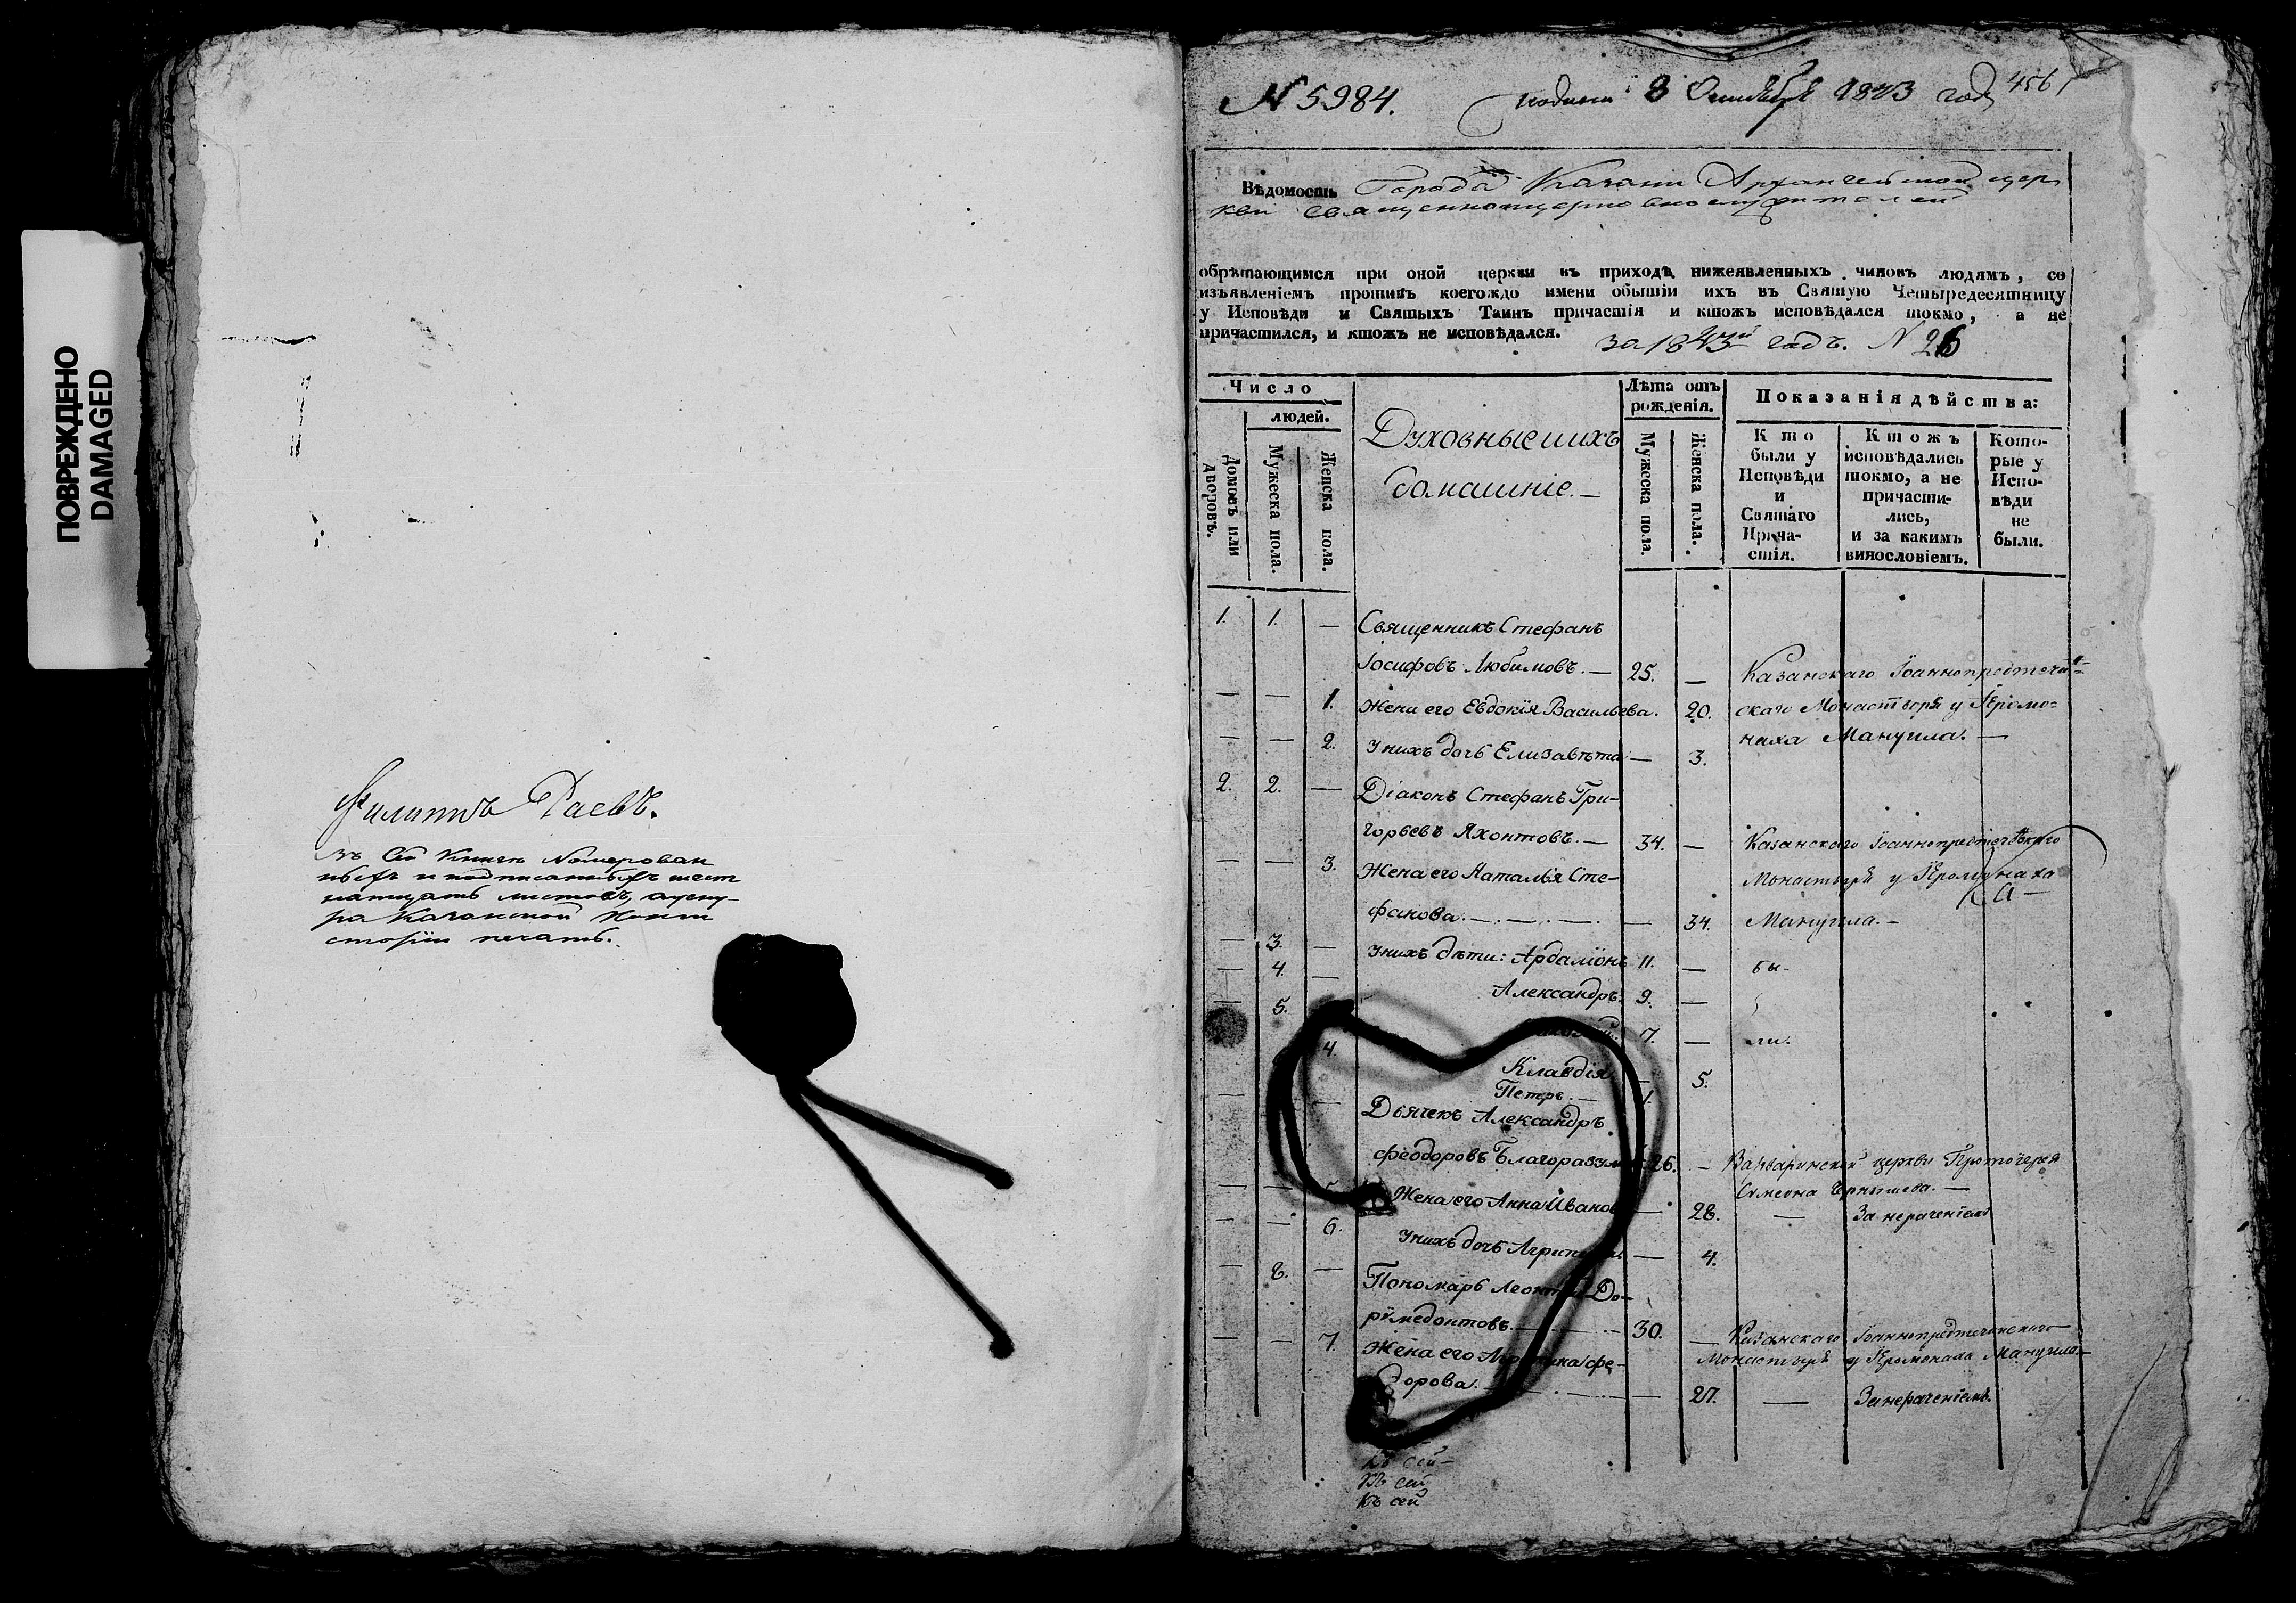 ПОВРЕЖДЕНО
DAMAGED
Филиппъ Раевъ.
въ сей книгѣ номерован
ныхъ и подписанныхъ шест
натцать листовъ, а у сну-
ра Казанской Конси
сторіи печать.
N 5984. подана 8 Октября 1843 года 456
Вѣдомость Города Казани Архангельской цер
кви священноцерковнослужителей
обрѣтающимся при оной церкви въ приходѣ нижеявленныхъ чиновъ людямъ, со
изъявленіемъ противъ коегождо имени обытіи ихъ въ Святую Четыредесятницу
у Исповѣди и Святыхъ Таинъ причастія и ктожъ исповѣдался токмо, а не
причастился, и ктожъ не исповѣдался. за 1843й годъ. N 26
Число
людей.
Домовъ или дворовъ.
Мужеска пола.
Женска пола.
Духовные и ихъ
домашніе. —
Лѣта отъ
рожденія.
Мужеска пола.
Женска пола.
Показанія дѣйства:
Кто
были у
Исповѣди
и
Святаго
Прича-
стія.
Ктожъ
исповѣдались
токмо, а не
причасти-
лись,
и за какимъ
винословіемъ.
Кото-
рые у
Испо-
вѣди
не
были.
1. 1. — Священникъ Стефанъ
Іосифовъ Любимовъ. — 25. — Казанскаго Іоаннопредтечен-
— — 1. Жена его Евдокія Васильева. 20. скаго Монастыря у Іеромо-
наха Мануила. —
— — 2. У нихъ дочь Елизавѣта — 3.
2. 2. — Діаконъ Стефанъ Гри-
горьевъ Яхонтовъ. — 34. — Казанскаго Іоаннопредтеченскаго
— — 3. Жена его Наталья Сте- Монастыря у Іеромонаха
фанова. — 34. Мануила. —
— 3. — У нихъ дѣти: Ардаліонъ 11. — бы-
— 4. — Александръ. 9. —
— 5. 7. — ли.
4. Клавдія — 5.
— Петръ. — 1.
Дьячекъ Александръ
Феодоровъ 26. — Варваринской церкви Протоіерея
Симеона
— — 5. Жена его Анна Иванов — 28. — За нераченіемъ
— — 6. У нихъ дочь — 4.
— 8. — Пономарь Леонтій До-
римедонтовъ. — 30. — Казанскаго Іоаннопредтеченскаго
Монастыря у Іеромонаха Мануила. —
— — 7. Жена его Фе-
дорова. — 27. — За нераченіемъ.
Къ сей
Къ сей
Къ сей